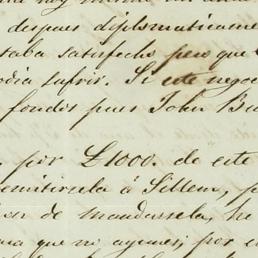 despues diplomaticame
taba satisfecho pero que
odia sufrir. Si este nego
fondos pues John Bu
por £1000. de este
emitirsela á Sillem, p
de mandarsela, he
que ni ayunes; por e